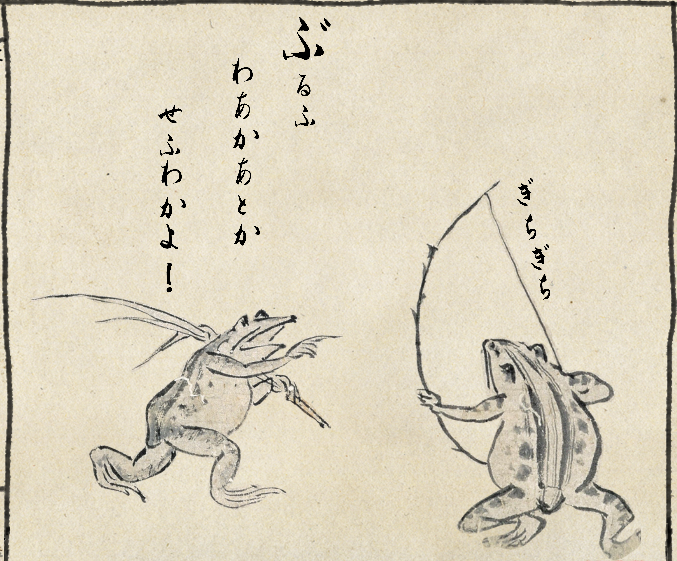 ぎちぎち
ぶるふ
わあかあとか
せふわかよ！